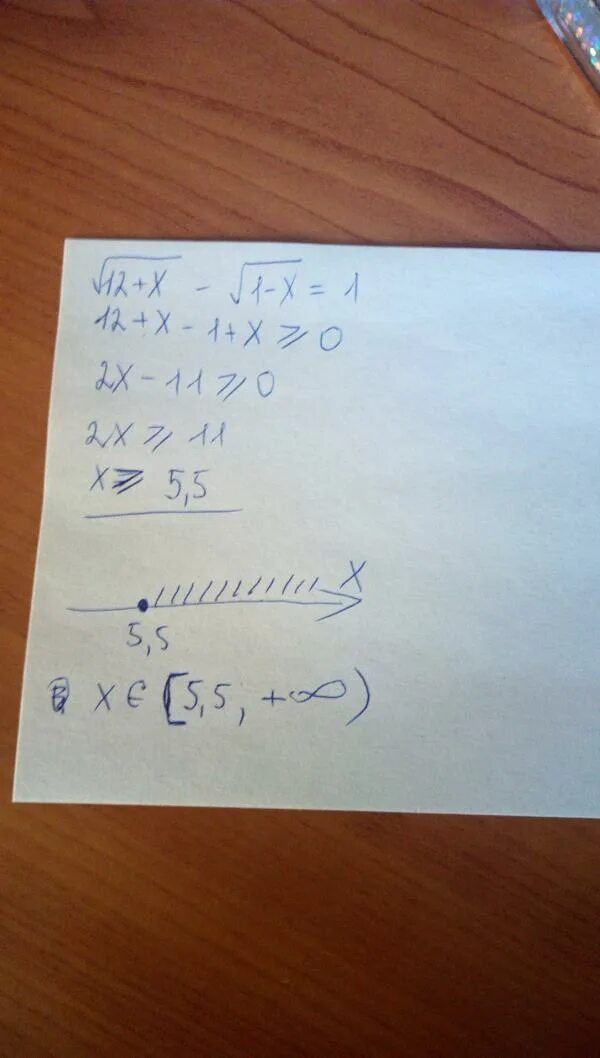 √12+X - √1-X = 1
12+X-1+X ⩾ 0
2X-11 ⩾ 0
2X ⩾ 11
X ⩾ 5,5
X
5,5
X ∈ [5,5, +∞)